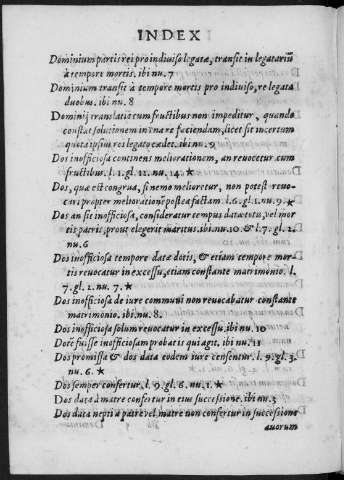 INDEX
Dominium partis rei pro indiviso legatæ, transit in legatariũ
à tempore mortis. ibi nu. 7
Dominium transit à tempore mortis pro indiviso, re legata
duobus. ibi nu. 8
Dominij translatio cum fructibus non impeditur, quando
constat solutionem in una re faciendam, licet sit incertum
quota ipsius rei legato cadet. ibi nu. 9
Dos inofficiosa continens meliorationem, an revocetur cum
fructibus. l. 1. gl. 12. nu. 14. ★
Dos, quæ est congrua, si nemo melioretur, non potest revo-
cari propter meliorationẽ postea factam. l. 6. gl. 2. nu. 9. ★
Dos an sit inofficiosa, consideratur tempus datæ dotis, vel mor
tis patris, prout elegerit maritus. ibi nu. 10. & l. 7. gl. 2.
nu. 6
Dos inofficiosa tempore datæ dotis, & etiam tempore mor-
tis revocatur in excessu, etiam constante matrimonio. l.
7. gl. 2. nu. 7. ★
Dos inofficiosa de iure communi non revocabatur constante
matrimonio. ibi nu. 8.
Dos inofficiosa solum revocatur in excessu. ibi nu. 10
Dotẽ fuisse inofficiosam probat is qui agit. ibi nu. 11
Dos promissa & dos data eodem iure censentur. l. 9. gl. 3.
nu. 6. ★
Dos semper confertur. l. 9. gl. 6. nu. 1. ★
Dos data à matre confertur in eius successione. ibi nu. 3
Dos data nepti à patre vel matre non confertur in successione
avorum